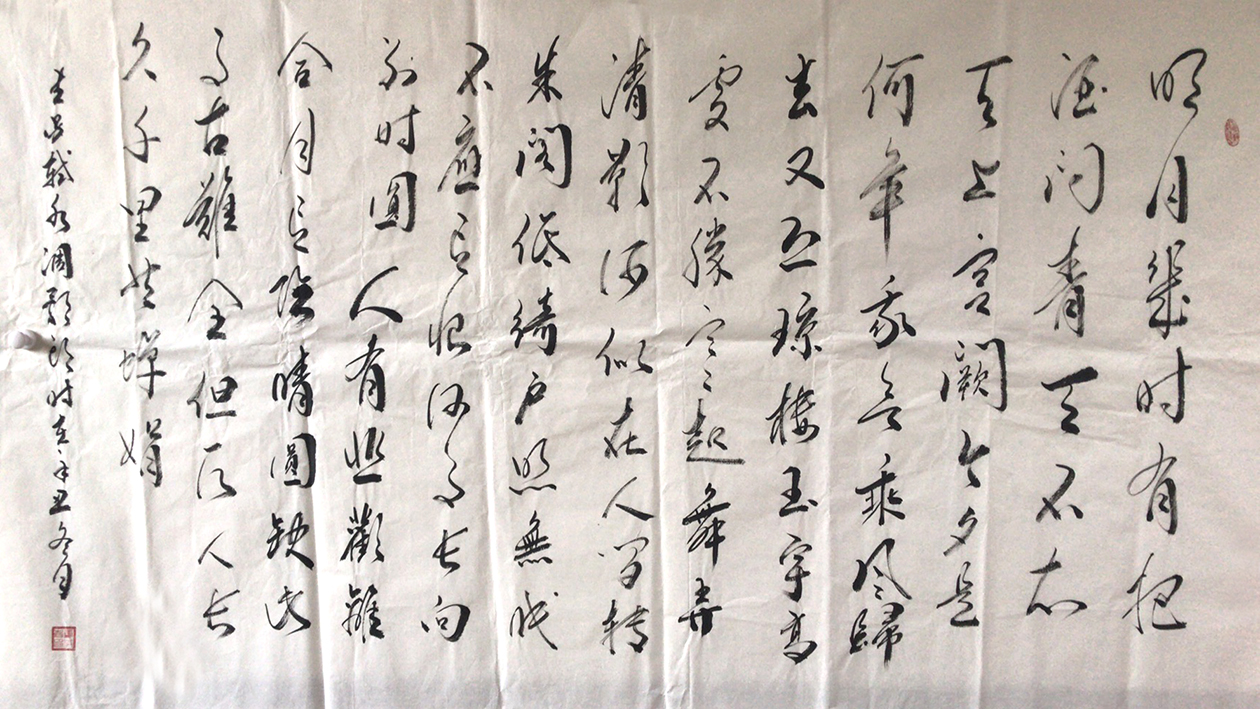 明月幾时有把
酒问青天不知
天上宫阙今夕是
何年我欲乘风歸
去又恐琼楼玉宇高
處不勝寒起舞弄
清影何似在人间转
朱阁低绮户照無眠
不應有恨何事长向
别时圆人有悲歡離
合月有阴晴圓缺此
事古難全但愿人长
久千里共婵娟
书苏轼水调歌头时在辛丑冬月